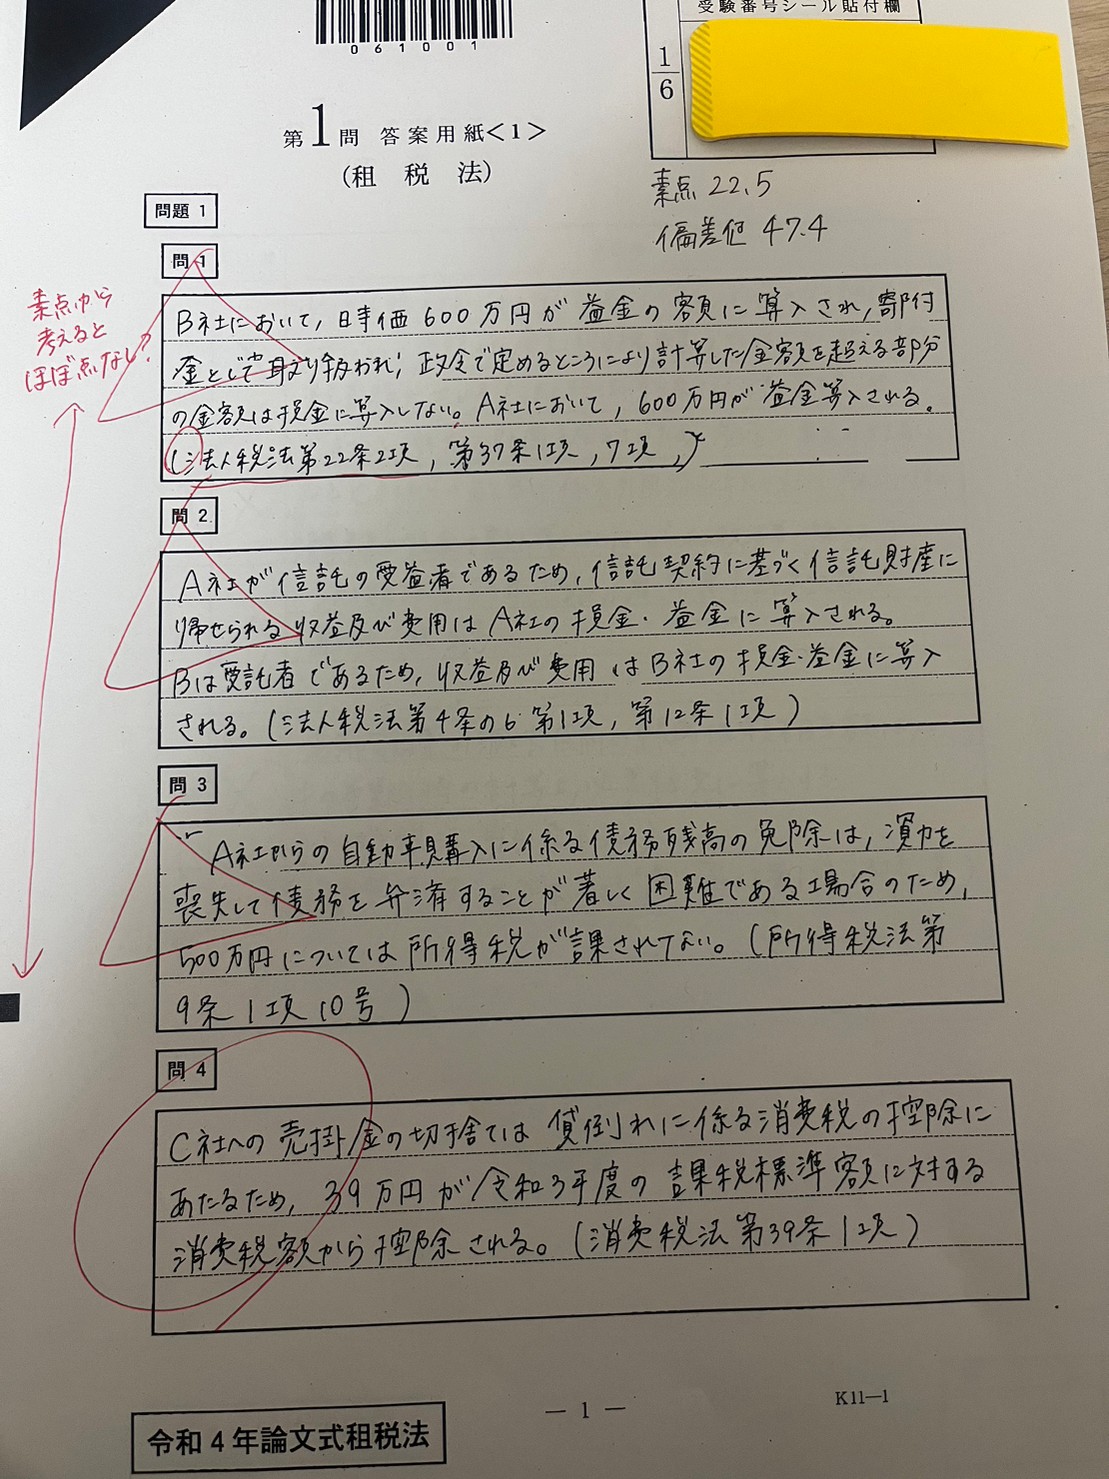 061001
受験番号シール貼付欄
1
6
第1問 答案用紙<1>
(租税法)
素点 22.5
偏差値 47.4
問題 1
問 1
素点から
考えると
ほぼ点なし?
B社において, 時価600万円が益金の額に算入され, 寄付
金として取り扱われ, 政令で定めるところにより計算した金額を超える部分
の金額は損金に算入しない。A社において, 600万円が益金算入される。
(法人税法第22条2項, 第37条1項, 7項,)
問 2
A社が信託の受益者であるため, 信託契約に基づく信託財産に
帰せられる収益及び費用はA社の損金・益金に算入される。
Bは受託者であるため, 収益及び費用はB社の損金・益金に算入
される。(法人税法第4条の6第1項, 第12条1項)
問 3
A社からの自動車購入に係る債務残高の免除は, 資力を
喪失して債務を弁済することが著しく困難である場合のため,
500万円については所得税が課されてない。(所得税法第
9条1項10号)
問 4
C社への売掛金の切捨ては貸倒れに係る消費税の控除に
あたるため, 39万円が令和3年度の課税標準額に対する
消費税額から控除される。(消費税法第39条1項)
— 1 —
K11—1
令和4年論文式租税法